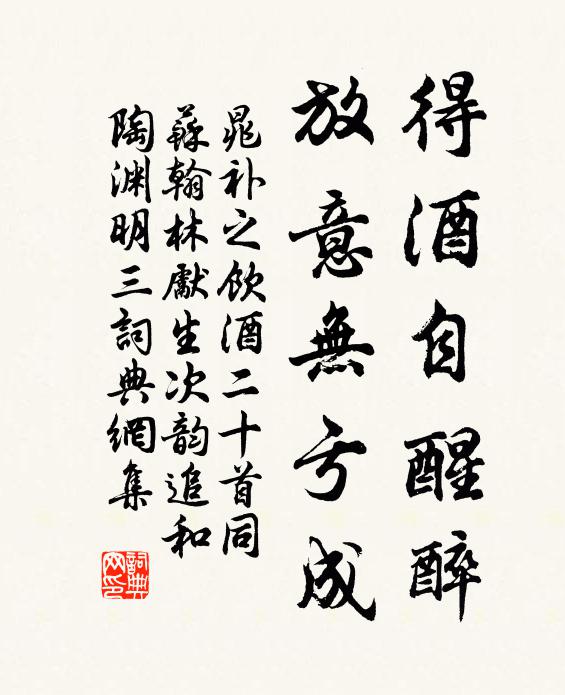 得酒自醒醉
放意無亏成
晁补之飲酒二十首同
蘇翰林獻生次韵追和
陶渊明三詞典網集
詞典
网印